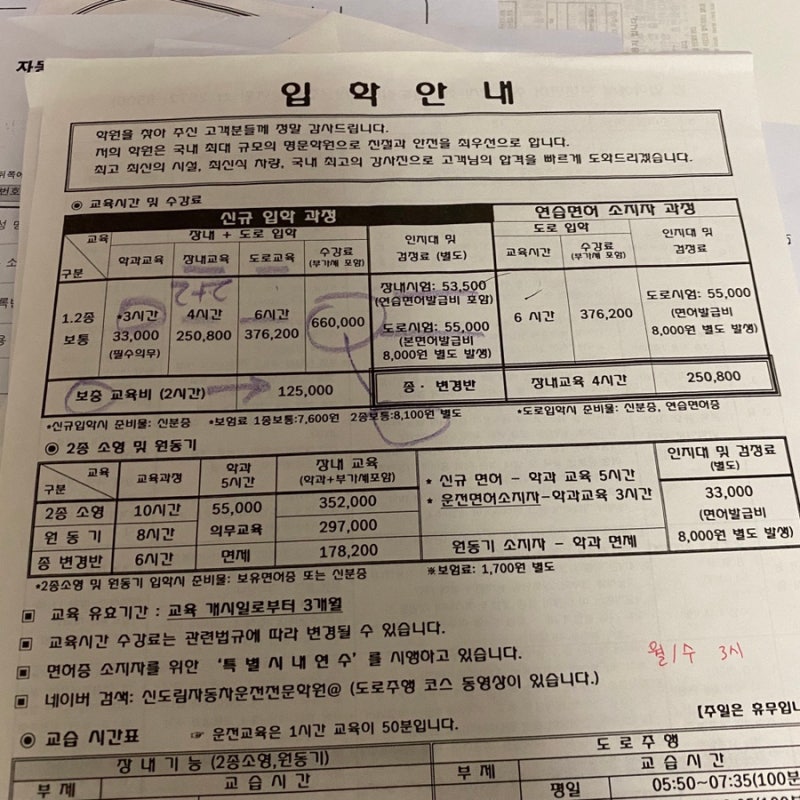 입 학 안 내
학원을 찾아 주신 고객분들께 정말 감사드립니다.
저의 학원은 국내 최대 규모의 명문학원으로 친절과 안전을 최우선으로 합니다.
최고 최신의 시설, 최신식 차량, 국내 최고의 강사진으로 고객님의 합격을 빠르게 도와드리겠습니다.
◉ 교육시간 및 수강료
신규 입학 과정
연습면허 소지자 과정
교육
구분
장내 + 도로 입학
인지대 및
검정료 (별도)
도로 입학
인지대 및
검정료
학과교육
장내교육
도로교육
수강료
(부가세 포함)
교육시간
수강료
(부가세 포함)
2+2
1.2종
보통
•3시간
33,000
(필수의무)
4시간
250,800
6시간
376,200
660,000
장내시험: 53,500
(연습면허발급비 포함)
도로시험: 55,000
(본면허발급비
8,000원 별도 발생)
6 시간
376,200
도로시험: 55,000
(면허발급비
8,000원 별도 발생)
보충 교육비 (2시간)
125,000
종 · 변경반
장내교육 4시간
250,800
•신규입학시 준비물: 신분증 •보험료 1종보통:7,600원 2종보통:8,100원 별도
•도로입학시 준비물: 신분증, 연습면허증
◉ 2종 소형 및 원동기
교육
구분
교육과정
학과
5시간
장내 교육
(학과+부가세포함)
* 신규 면허 - 학과 교육 5시간
* 운전면허소지자-학과교육 3시간
인지대 및 검정료
(별도)
2종 소형
10시간
55,000
352,000
33,000
원 동 기
8시간
의무교육
297,000
(면허발급비
종 변경반
6시간
면제
178,200
원동기 소지자 - 학과 면제
8,000원 별도 발생)
•2종소형 및 원동기 입학시 준비물: 보유면허증 또는 신분증
※보험료: 1,700원 별도
▣ 교육 유효기간 : 교육 개시일로부터 3개월
▣ 교육시간 수강료는 관련법규에 따라 변경될 수 있습니다.
▣ 면허증 소지자를 위한 '특 별 시 내 연 수' 를 시행하고 있습니다.
월/수 3시
▣ 네이버 검색: 신도림자동차운전전문학원@ (도로주행 코스 동영상이 있습니다.)
[주일은 휴무입니
◉ 교습 시간표
☞ 운전교육은 1시간 교육이 50분입니다.
장 내 기 능 (2종소형,원동기)
도 로 주 행
부 제
교 습 시 간
부 제
교 습 시 간
평일
05:50~07:35(100분